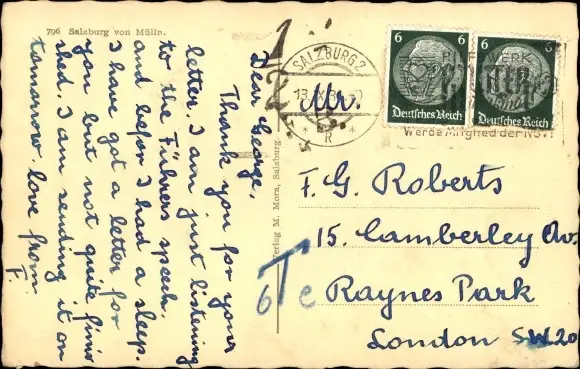 706 Salzburg von Mülln.
Dear George,
Thank you for your
letter. I am just listening
to the Führers speech.
and before I had a sleep.
I have got a letter for
you but not quite finis
shed. I am sending it on
tomorrow. love from
F.
Verlag M. Mora, Salzburg
SALZBURG 2
6
6
Deutsches Reich
Deutsches Reich
Werde Mitglied der NSV!
Mr.
F. G. Roberts
15. Camberley Av.
Raynes Park
London SW20
T
6 c